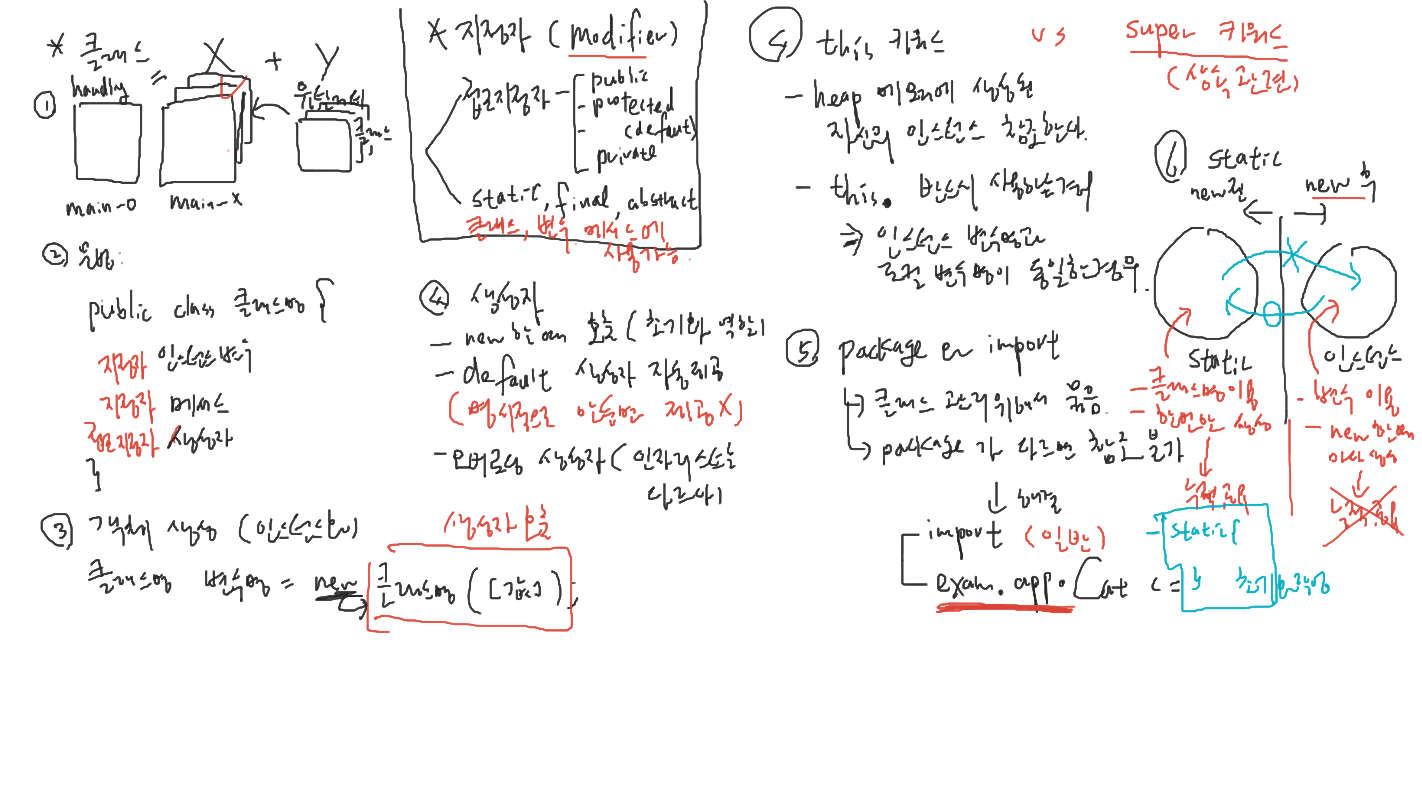 * 클래스 = X + Y
handly
유틸리티
클래스
①
main-o
main-x
② 문법:
public class 클래스명 {
지정자 인스턴스 변수
지정자 메서드
접근지정자 생성자
}
③ 객체 생성 (인스턴스화)
클래스명 변수명 = new 클래스명 ([값]);
생성자 호출
* 지정자 (modifier)
접근지정자
- public
- protected
- (default)
private
static, final, abstract
클래스, 변수, 메서드에
사용가능
④ 생성자
- new 할때 호출 (초기화 역할)
- default 생성자 자동제공
(명시적으로 만들면 제공X)
- 오버로딩 생성자 (인자리스트는
다르다)
this 키워드 vs super 키워드
(상속관련)
- heap 메모리에 생성된
자신의 인스턴스 참조한다.
- this. 반드시 사용하는경우
⇒ 인스턴스 변수명과
로컬 변수명이 동일한 경우.
⑤ package 와 import
↳ 클래스 관리위해서 묶음.
↳ package 가 다르면 참조 불가
↓ 해결
import (일반)
exam.app.Cat c =
⑥ static
new 전
new 후
static
인스턴스
- 클래스명 이용
- 한번만 생성
↓
누적 공유
- 변수 이용
- new 할때
마다 생성
↓
누적 공유
- static{
} 초기화 작업